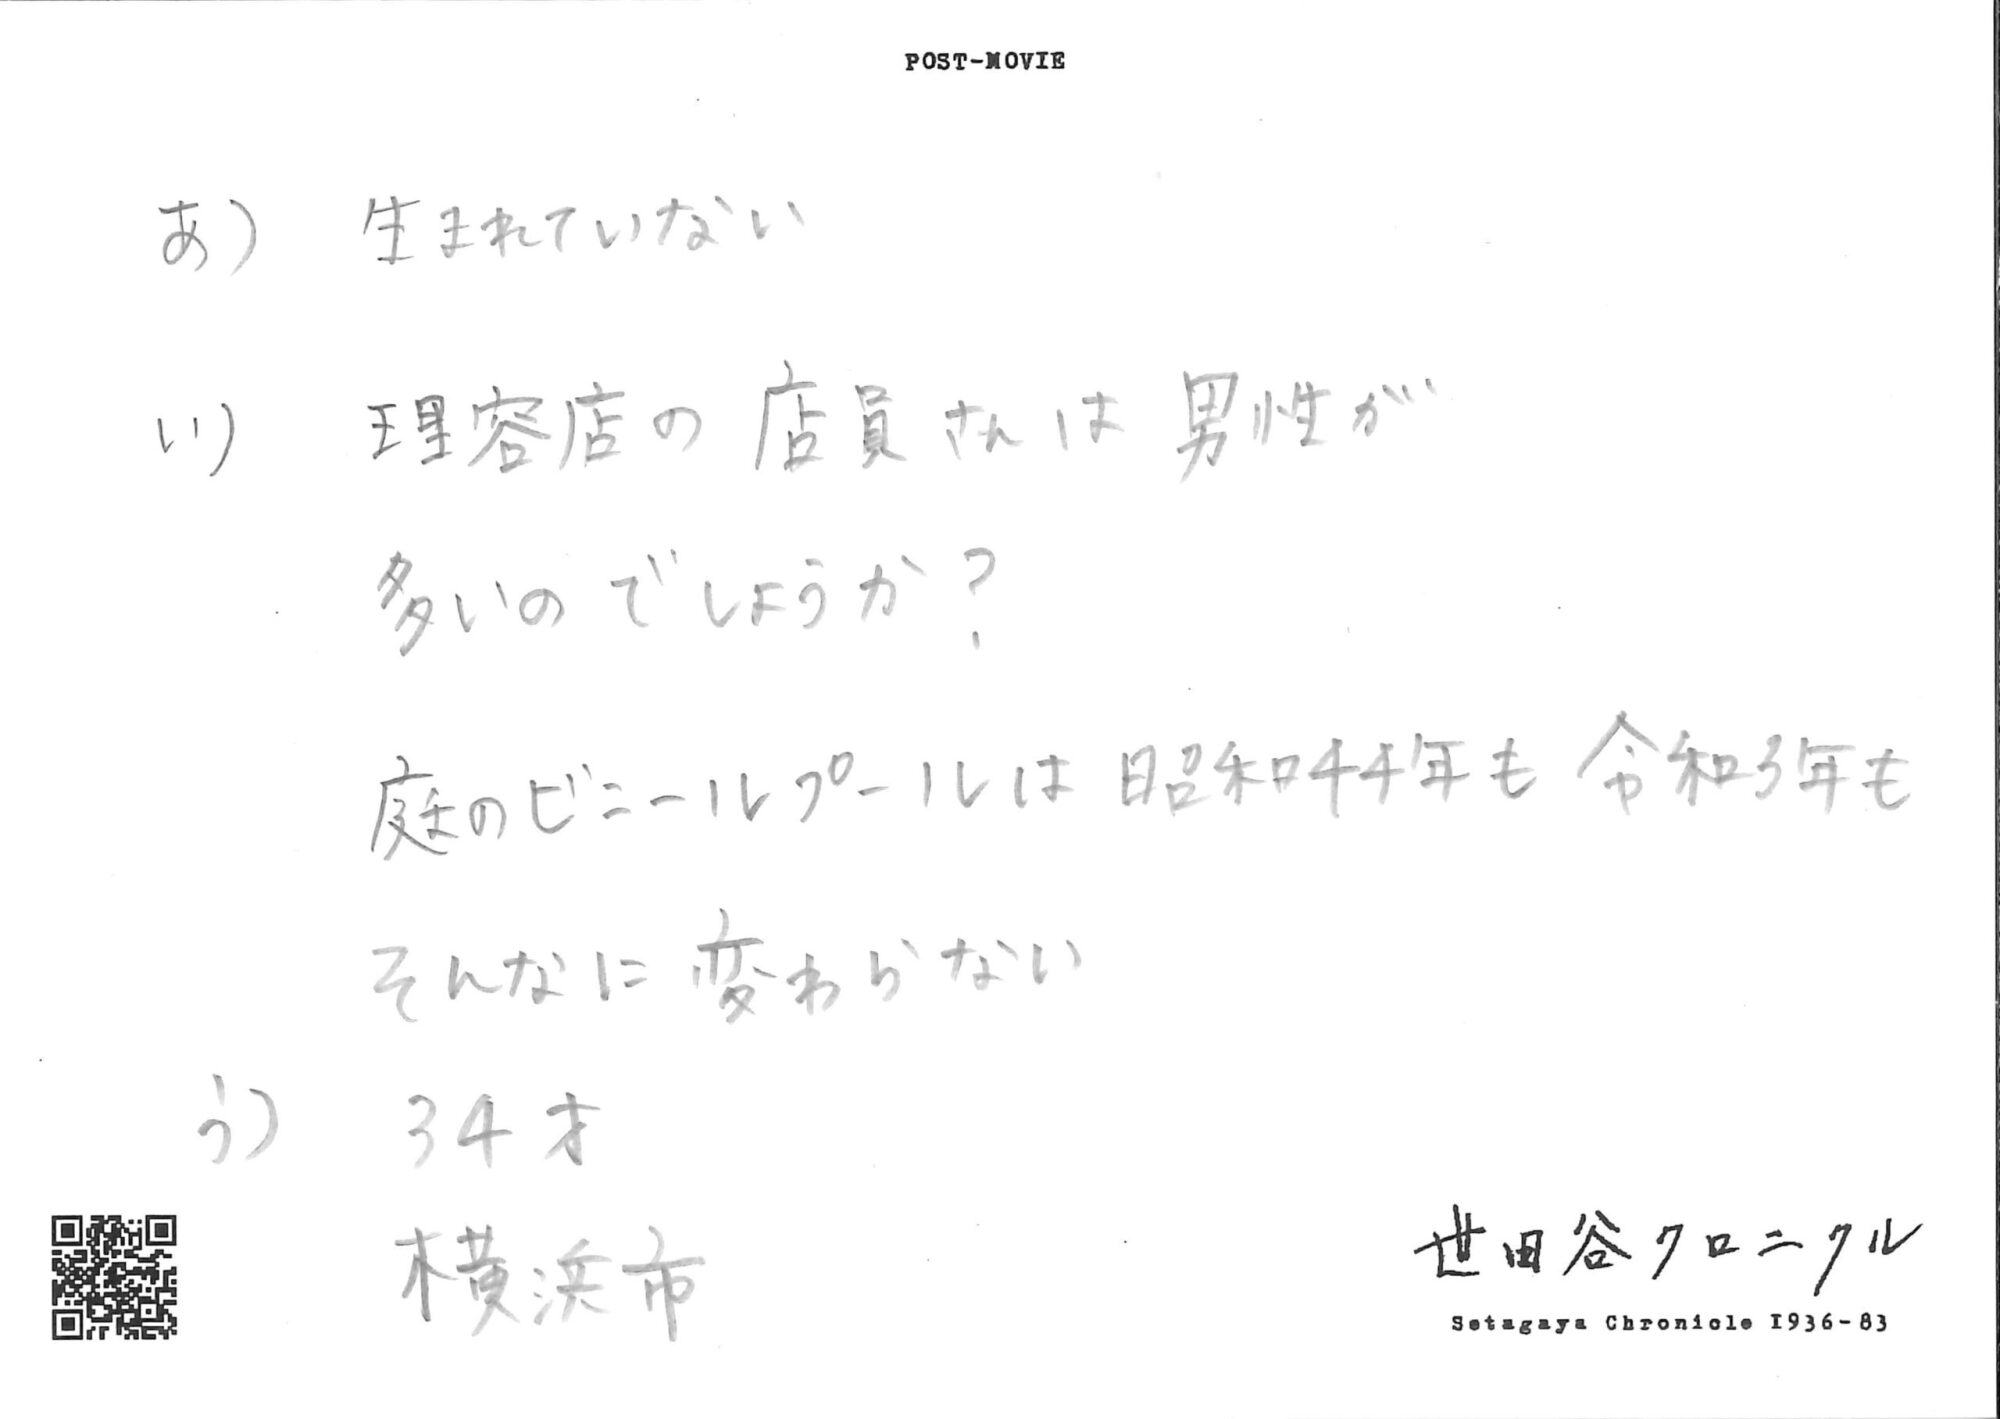 POST-MOVIE
あ) 生まれていない
い) 理容店の店員さんは男性が
多いのでしょうか?
庭のビニールプールは昭和44年も令和3年も
そんなに変わらない
う) 34才
横浜市
世田谷クロニクル
Setagaya Chronicle 1936-83